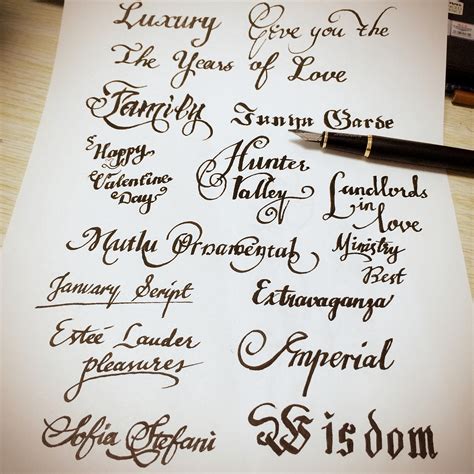 Luxury Give you the
The Years of Love
Family
Happy
Valentine
Day
Hunter
Valley
Landlords
in
love
Mutlu Ornamental
Ministry
Best
January Script
Extravaganza
Esteé Lauder
pleasures
Imperial
Sofia Stefani
Wisdom